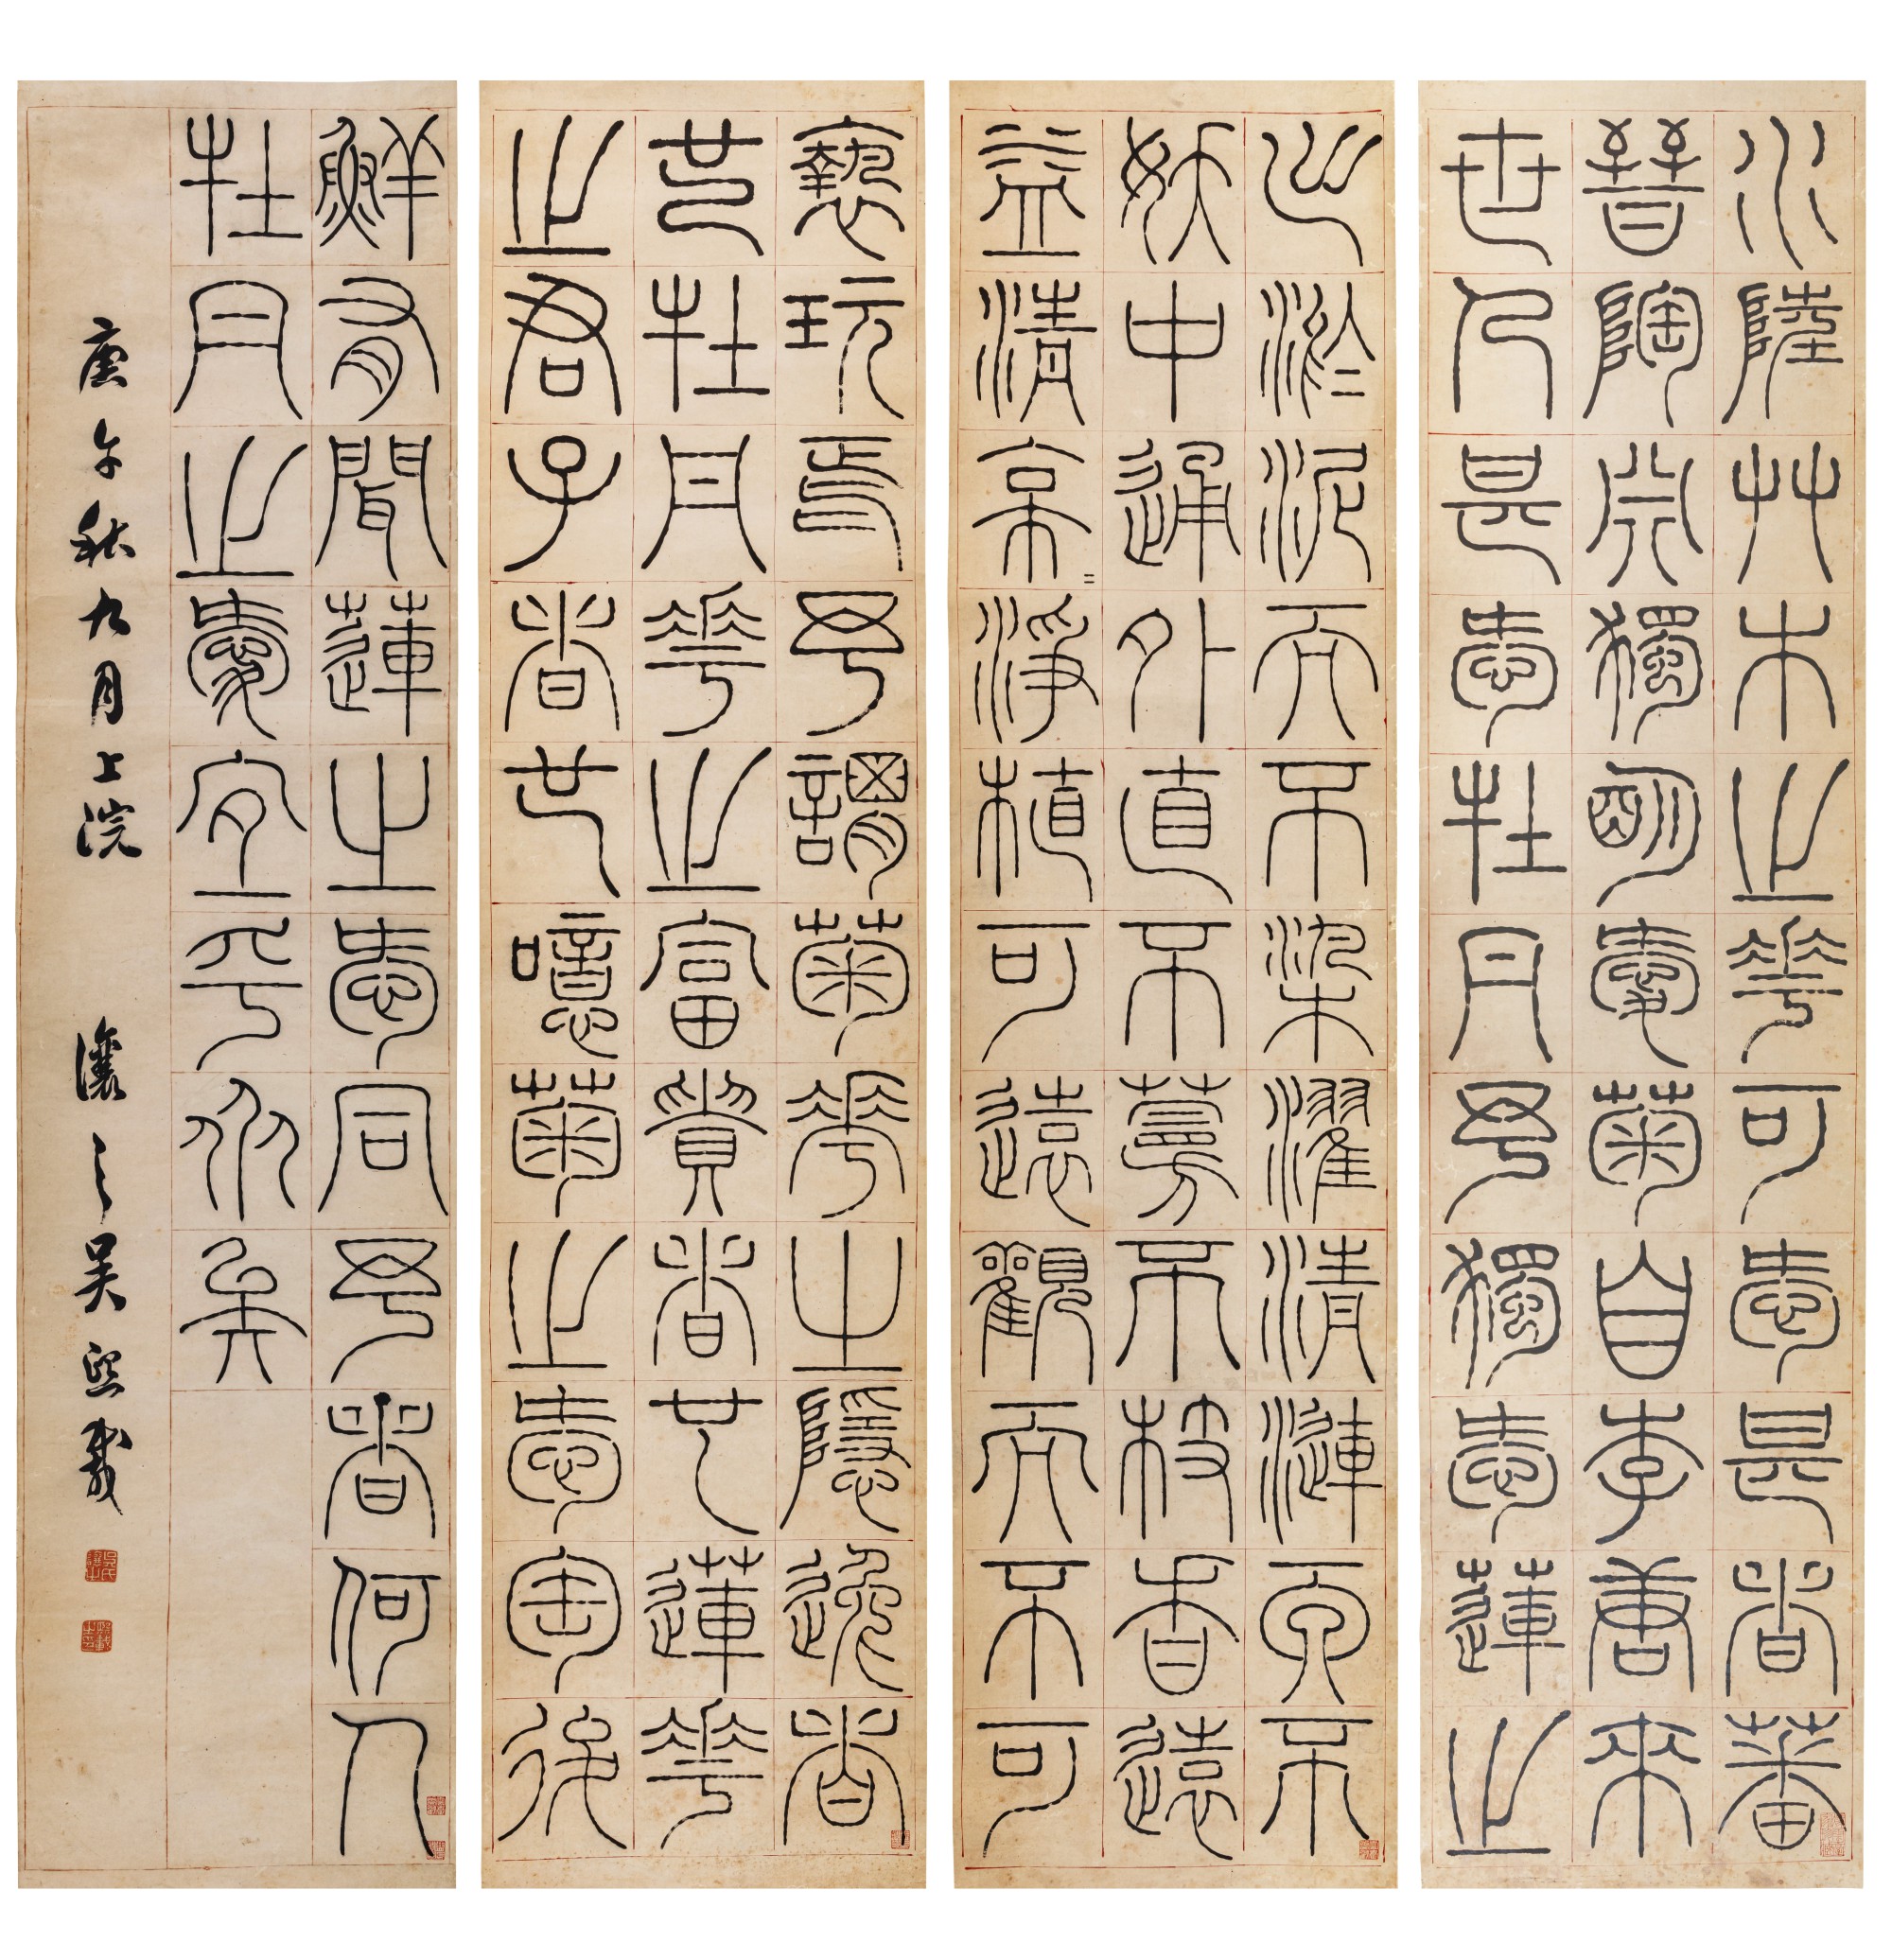 水陸艸木之華可愛甚者蕃
晉陶淵獨明愛菊自李唐來
世人甚愛牡丹予獨愛蓮之
出淤泥而不染濯清漣而不
妖中通外直不蔓不枝香遠
益清亭二淨植可遠觀而不可
褻玩焉予謂菊華之隱逸者
也牡丹華之富貴者也蓮華
之君子者也噫菊之愛陶後
鮮有聞蓮之愛同予者何人
牡丹之愛宜乎眾矣
庚午秋九月上浣 讓之吳熙載
吳氏讓之
熙載之印